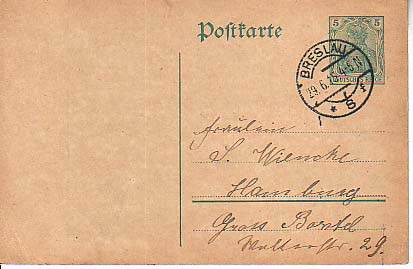 Postkarte
5 5
DEUTSCHES REICH
BRESLAU
29.6.
* 1 S
Fräulein
S. Wiencke
Hamburg
Gross Borstel
Wolterstr. 29.